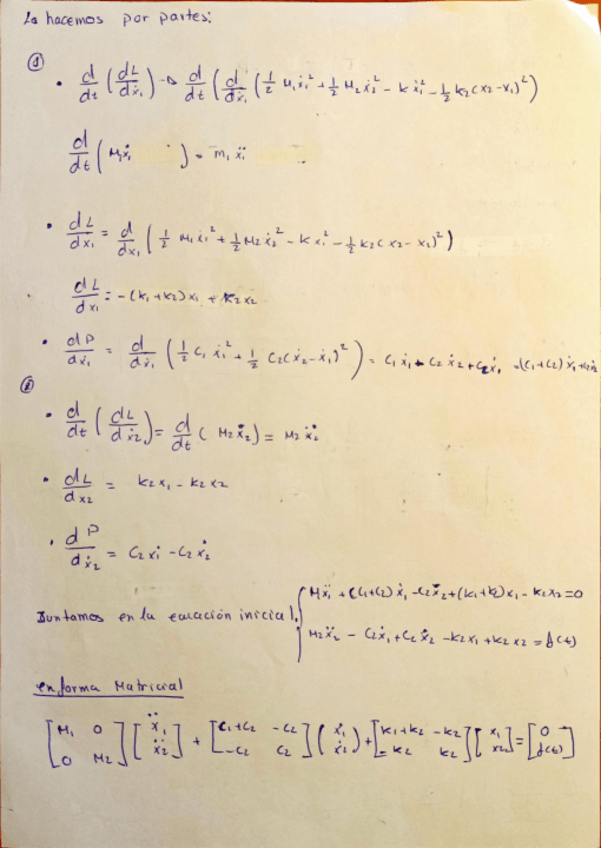 La hacemos por partes:
①
• d/dt (dL/dẋ₁) → d/dt (d/dẋ₁ (1/2 M₁ẋ₁² + 1/2 M₂ẋ₂² - k ẋ₁² - 1/2 k₂(x₂-x₁)²)
d/dt (M₁ẋ₁ ) = m₁ ẍ₁
• dL/dx₁ = d/dx₁ (1/2 M₁ẋ₁² + 1/2 M₂ẋ₂² - k x₁² - 1/2 k₂(x₂-x₁)²)
dL/dx₁ = -(k₁+k₂)x₁ + k₂x₂
• dP/dẋ₁ = d/dẋ₁ (1/2 C₁ ẋ₁² + 1/2 C₂(ẋ₂-ẋ₁)²) = C₁ẋ₁ + C₂ẋ₂ + C₂ẋ₁ = (C₁+C₂)ẋ₁+C₂ẋ₂
②
• d/dt (dL/dẋ₂) = d/dt (M₂ẋ₂) = M₂ẍ₂
• dL/dx₂ = k₂x₁ - k₂x₂
• dP/dẋ₂ = C₂ẋ₁ - C₂ẋ₂
Juntamos en la ecuación inicial.
Mẍ₁ + (C₁+C₂)ẋ₁ - C₂ẋ₂ + (k₁+k₂)x₁ - k₂x₂ = 0
M₂ẍ₂ - C₂ẋ₁ + C₂ẋ₂ - k₂x₁ + k₂x₂ = f(t)
en forma Matricial
[M₁ 0; 0 M₂] [ẍ₁; ẍ₂] + [C₁+C₂ -C₂; -C₂ C₂] (ẋ₁; ẋ₂) + [k₁+k₂ -k₂; -k₂ k₂] [x₁; x₂] = [0; f(t)]